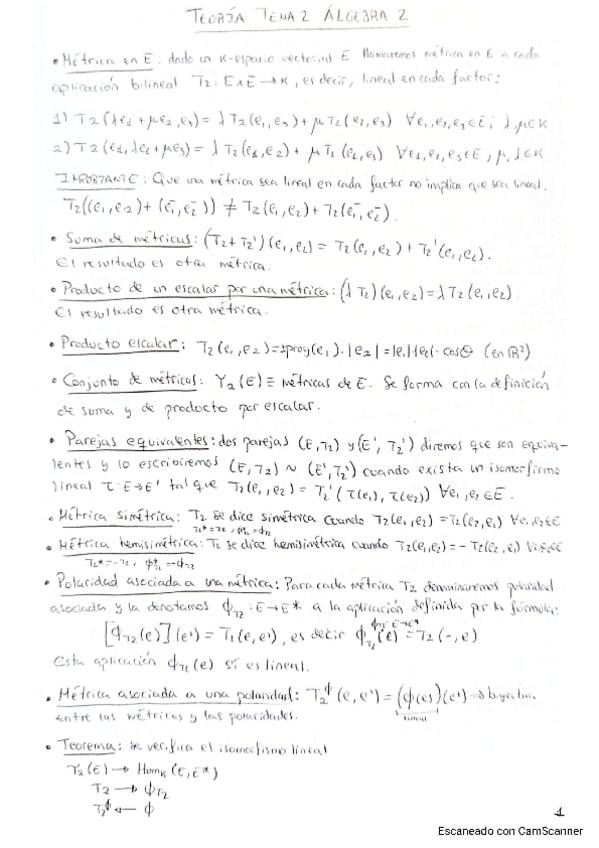 TEORÍA TEMA 2 ÁLGEBRA 2
• Métrica en E: dado un K-espacio vectorial E llamaremos métrica en E a cada
aplicación bilineal T2: E∧E → K, es decir, lineal en cada factor:
1) T2(λe1 + μe2, e3) = λ T2(e1, e3) + μ T2(e2, e3) ∀e1, e2, e3 ∈ E; λ, μ ∈ K
2) T2(e1, λe2 + μe3) = λ T2(e1, e2) + μ T2(e1, e3) ∀e1, e2, e3 ∈ E, μ, λ ∈ K
IMPORTANTE: Que una métrica sea lineal en cada factor no implica que sea lineal.
T2((e1, e2) + (ē1, ē2)) ≠ T2(e1, e2) + T2(ē1, ē2).
• Suma de métricas: (T2 + T2')(e1, e2) = T2(e1, e2) + T2'(e1, e2).
El resultado es otra métrica.
• Producto de un escalar por una métrica: (λ T2)(e1, e2) = λ T2(e1, e2).
El resultado es otra métrica.
• Producto escalar: T2(e1, e2) = proy(e1) · |e2| = |e1| · |e2| · cosθ (en R²)
• Conjunto de métricas: Υ2(E) ≡ métricas de E. Se forma con la definición
de suma y de producto por escalar.
• Parejas equivalentes: dos parejas (E, T2) y (E', T2') diremos que son equiva-
lentes y lo escribiremos (E, T2) ~ (E', T2') cuando exista un isomorfismo
lineal τ: E → E' tal que T2(e1, e2) = T2'(τ(e1), τ(e2)) ∀e1, e2 ∈ E.
• Métrica simétrica: T2 se dice simétrica cuando T2(e1, e2) = T2(e2, e1) ∀e1, e2 ∈ E
T2* = T2, φ*T2 = φT2
• Métrica hemisimétrica: T2 se dice hemisimétrica cuando T2(e1, e2) = - T2(e2, e1) ∀e1, e2 ∈ E
T2* = -T2, φ*T2 = -φT2
• Polaridad asociada a una métrica: Para cada métrica T2 denominaremos polaridad
asociada y la denotamos φT2: E → E* a la aplicación definida por la fórmula:
[φT2(e)](e') = T2(e, e'), es decir φT2(e) = T2(-, e)
φT2: E → E*
Esta aplicación φT2(e) sí es lineal.
• Métrica asociada a una polaridad: T2^φ(e, e') = (φ(e))(e') → biyectiva
lineal
entre las métricas y las polaridades.
• Teorema: se verifica el isomorfismo lineal
Υ2(E) → HomK(E, E*)
T2 → φT2
T2^φ ← φ
1
Escaneado con CamScanner